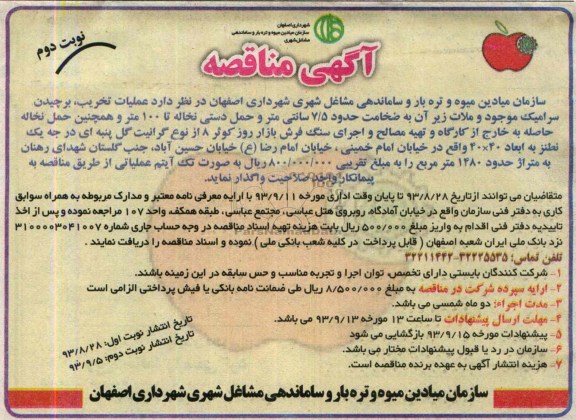 شهرداری اصفهان
سازمان میادین میوه و تره بار و ساماندهی
مشاغل شهری
نوبت دوم
آگهی مناقصه
سازمان میادین میوه و تره بار و ساماندهی مشاغل شهری شهرداری اصفهان در نظر دارد عملیات تخریب، برچیدن
سرامیک موجود و ملات زیر آن به ضخامت حدود ۷/۵ سانتی متر و حمل دستی نخاله تا ۱۰۰ متر و همچنین حمل نخاله
حاصله به خارج از کارگاه و تهیه مصالح و اجرای سنگ فرش بازار روز کوثر ۸ از نوع گرانیت گل پنبه ای در جه یک
نطنز به ابعاد ۴۰×۴۰ واقع در خیابان امام خمینی ، خیابان امام رضا (ع) خیابان حسین آباد، جنب گلستان شهدای رهنان
به متراژ حدود ۱۴۸۰ متر مربع را به مبلغ تقریبی ۸۰۰/۰۰۰/۰۰۰ ریال به صورت تک آیتم عملیاتی از طریق مناقصه به
پیمانکار واجد صلاحیت واگذار نماید.
متقاضیان می توانند ازتاریخ ۹۳/۸/۲۸ تا پایان وقت اداری مورخه ۹۳/۹/۱۱ با ارایه معرفی نامه معتبر و مدارک مربوطه به همراه سوابق
کاری به دفتر فنی سازمان واقع در خیابان آمادگاه، روبروی هتل عباسی، مجتمع عباسی، طبقه همکف واحد ۱۰۷ مراجعه نموده و پس از اخذ
تاییدیه دفتر فنی اقدام به واریز مبلغ ۵۰۰/۰۰۰ ریال بابت هزینه تهیه اسناد مناقصه در وجه حساب جاری شماره ۳۱۰۰۰۰۳۰۴۱۰۰۷
نزد بانک ملی ایران شعبه اصفهان ( قابل پرداخت در کلیه شعب بانکی ملی ) نموده و اسناد مناقصه را دریافت نمایند .
تلفن تماس: ۳۲۲۲۵۵۳۵-۳۲۲۱۱۴۴۲
۱- شرکت کنندگان بایستی دارای تخصص، توان اجرا و تجربه مناسب و حس سابقه در این زمینه باشند.
۲- ارایه سپرده شرکت در مناقصه به مبلغ ۸/۵۰۰/۰۰۰ ریال طی ضمانت نامه بانکی یا فیش پرداختی الزامی است
۳- مدت اجراء: دو ماه شمسی می باشد.
۴- مهلت ارسال پیشنهادات تا ساعت ۱۳ مورخه ۹۳/۹/۱۳ می باشد.
۵- پیشنهادات مورخه ۹۳/۹/۱۵ بازگشایی می شود
۶- سازمان در رد یا قبول پیشنهادات مختار می باشد.
۷- هزینه انتشار آگهی به عهده برنده مناقصه است.
تاریخ انتشار نوبت اول: ۹۳/۸/۲۸
تاریخ انتشار نوبت دوم: ۹۳/۹/۵
سازمان میادین میوه و تره بار و ساماندهی مشاغل شهری شهرداری اصفهان